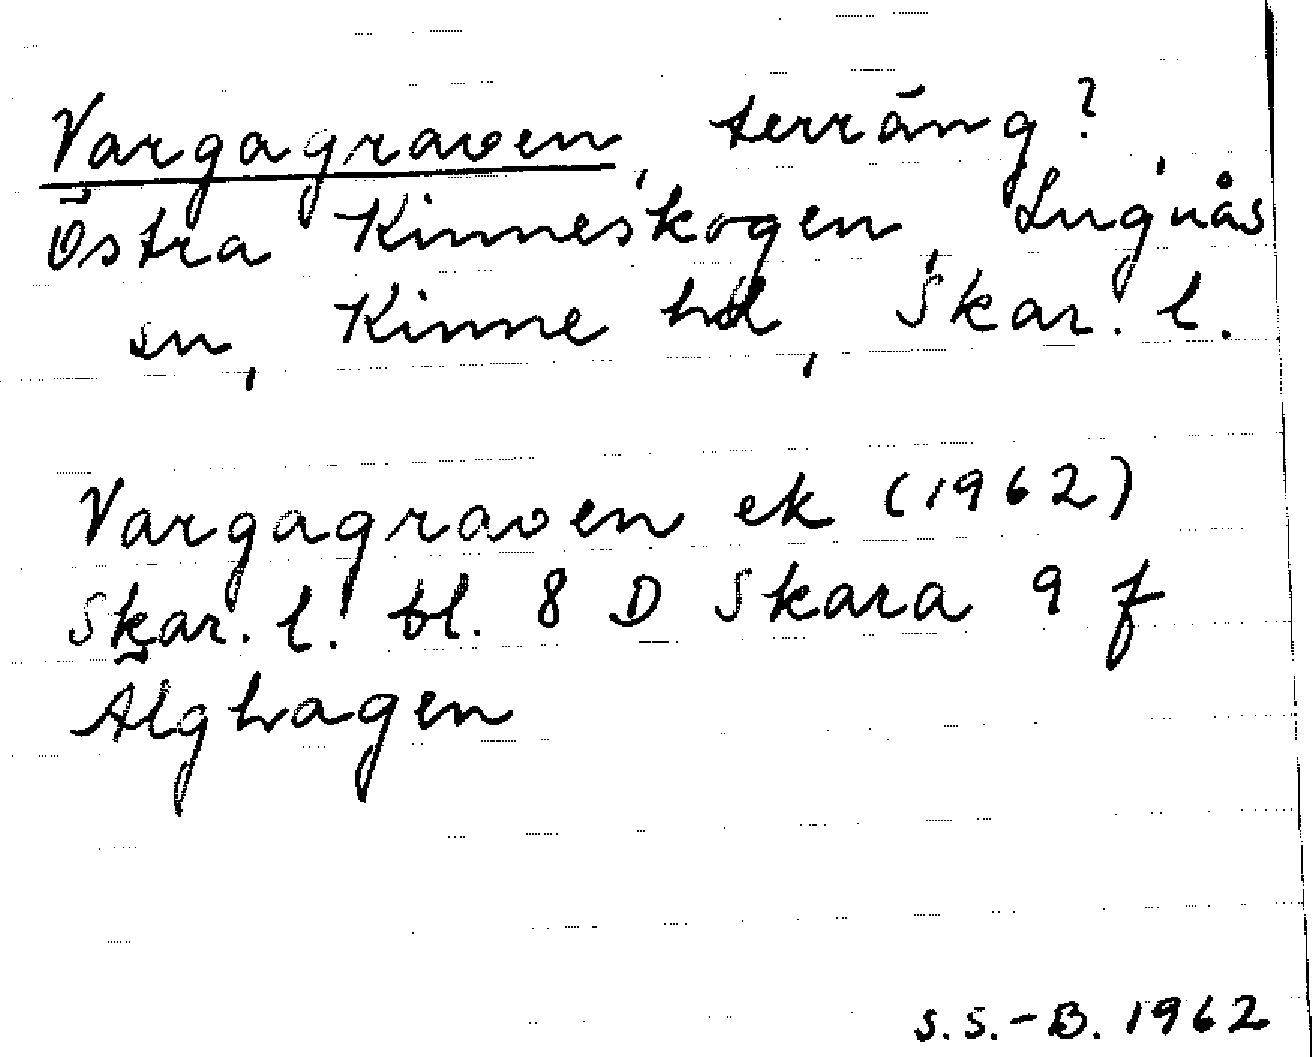 Vargagraven, terräng?
Östra Kinneskogen, Lugnås
sn, Kinne hd, Skar. l.
Vargagraven ek (1962)
Skar. l. bl. 8 D Skara 9 f
Älghagen
S.S.-B. 1962